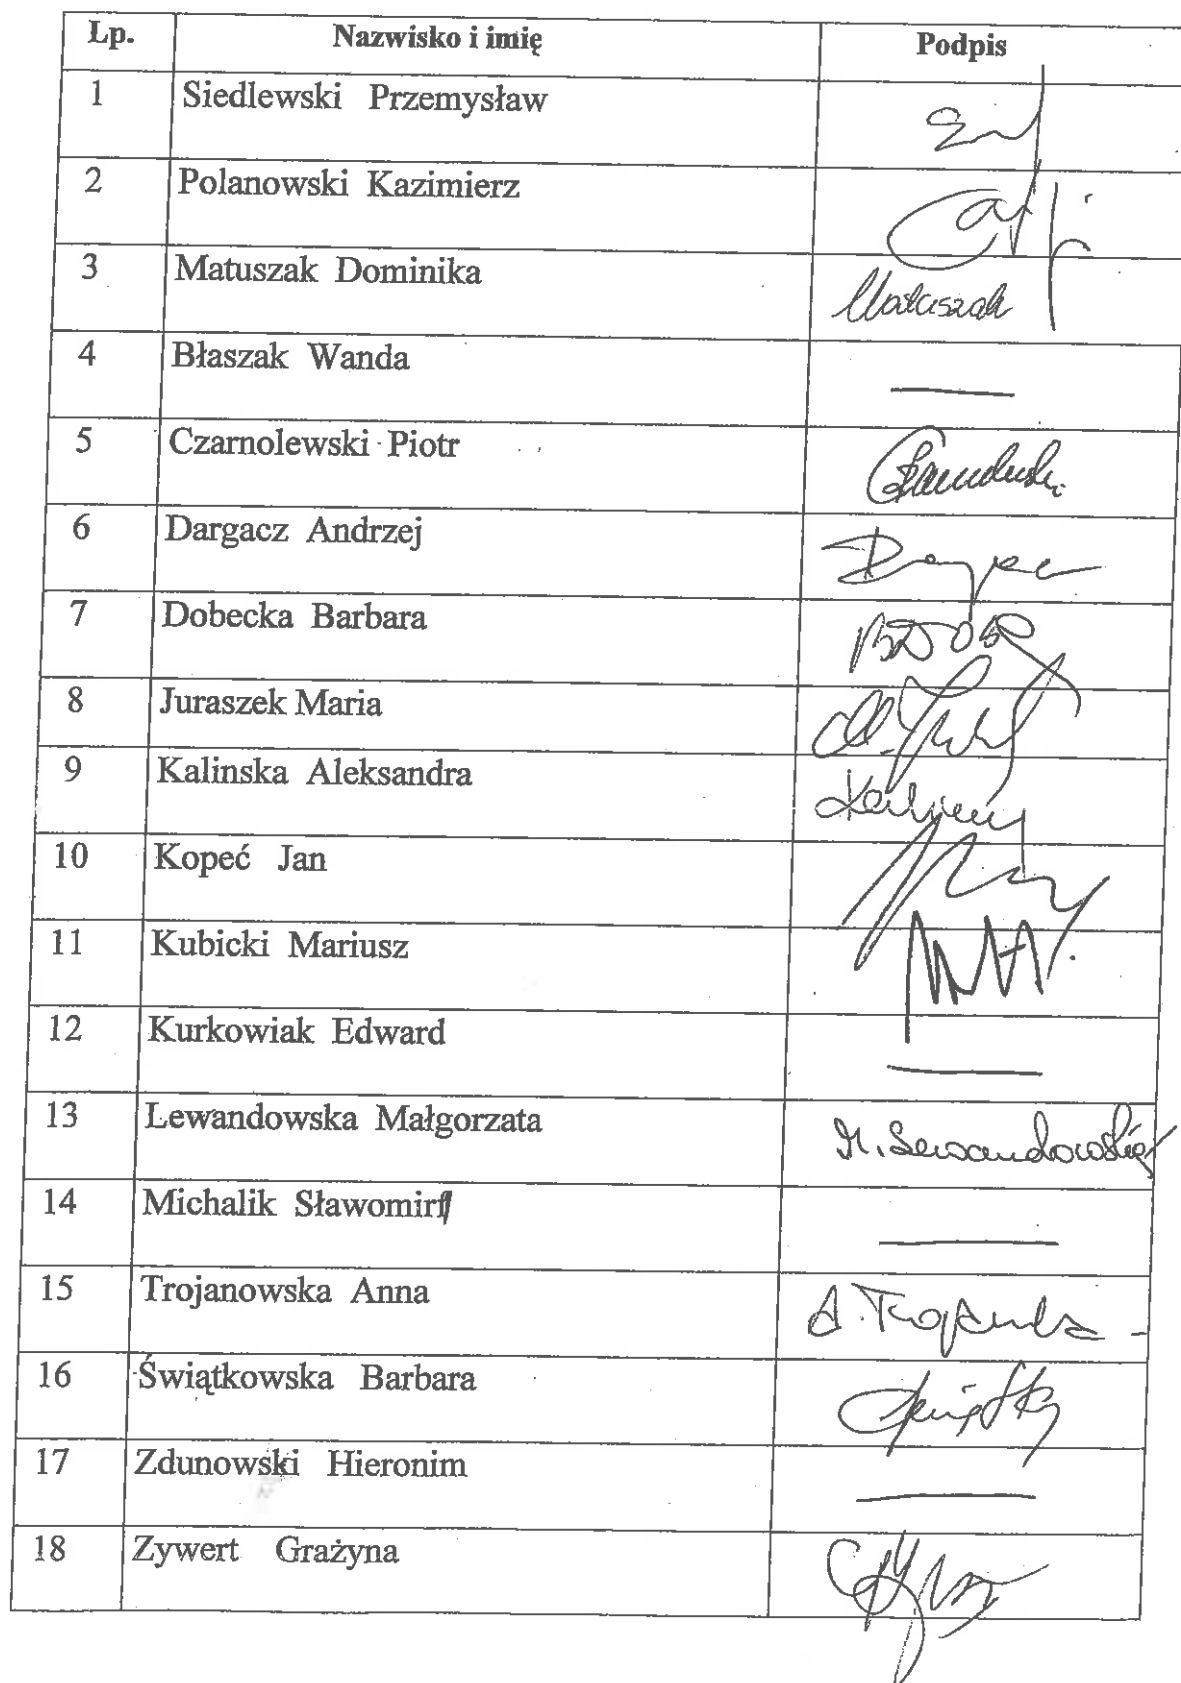 Lp. Nazwisko i imię Podpis
1 Siedlewski Przemysław
2 Polanowski Kazimierz
3 Matuszak Dominika Matuszak
4 Błaszak Wanda —
5 Czarnolewski Piotr
6 Dargacz Andrzej
7 Dobecka Barbara
8 Juraszek Maria
9 Kalinska Aleksandra
10 Kopeć Jan
11 Kubicki Mariusz
12 Kurkowiak Edward —
13 Lewandowska Małgorzata M. Lewandowska
14 Michalik Sławomir —
15 Trojanowska Anna
16 Świątkowska Barbara
17 Zdunowski Hieronim —
18 Zywert Grażyna